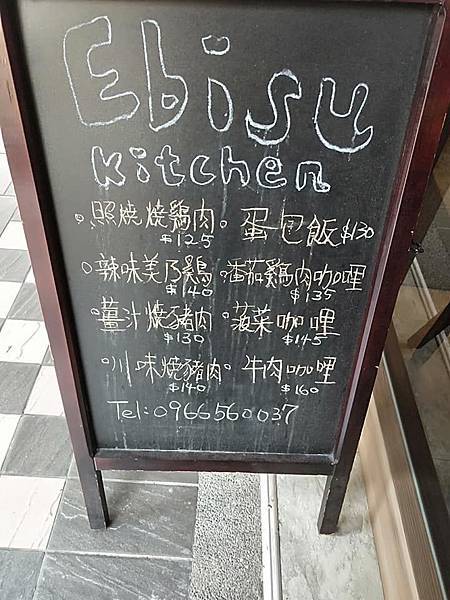 Ebisu
kitchen
照燒燒鷄肉 $125
蛋包飯 $130
辣味美乃鷄 $140
番茄鷄肉咖哩 $135
薑汁燒豬肉 $130
菠菜咖哩 $145
川味燒豬肉 $140
牛肉咖哩 $160
Tel:0966560037